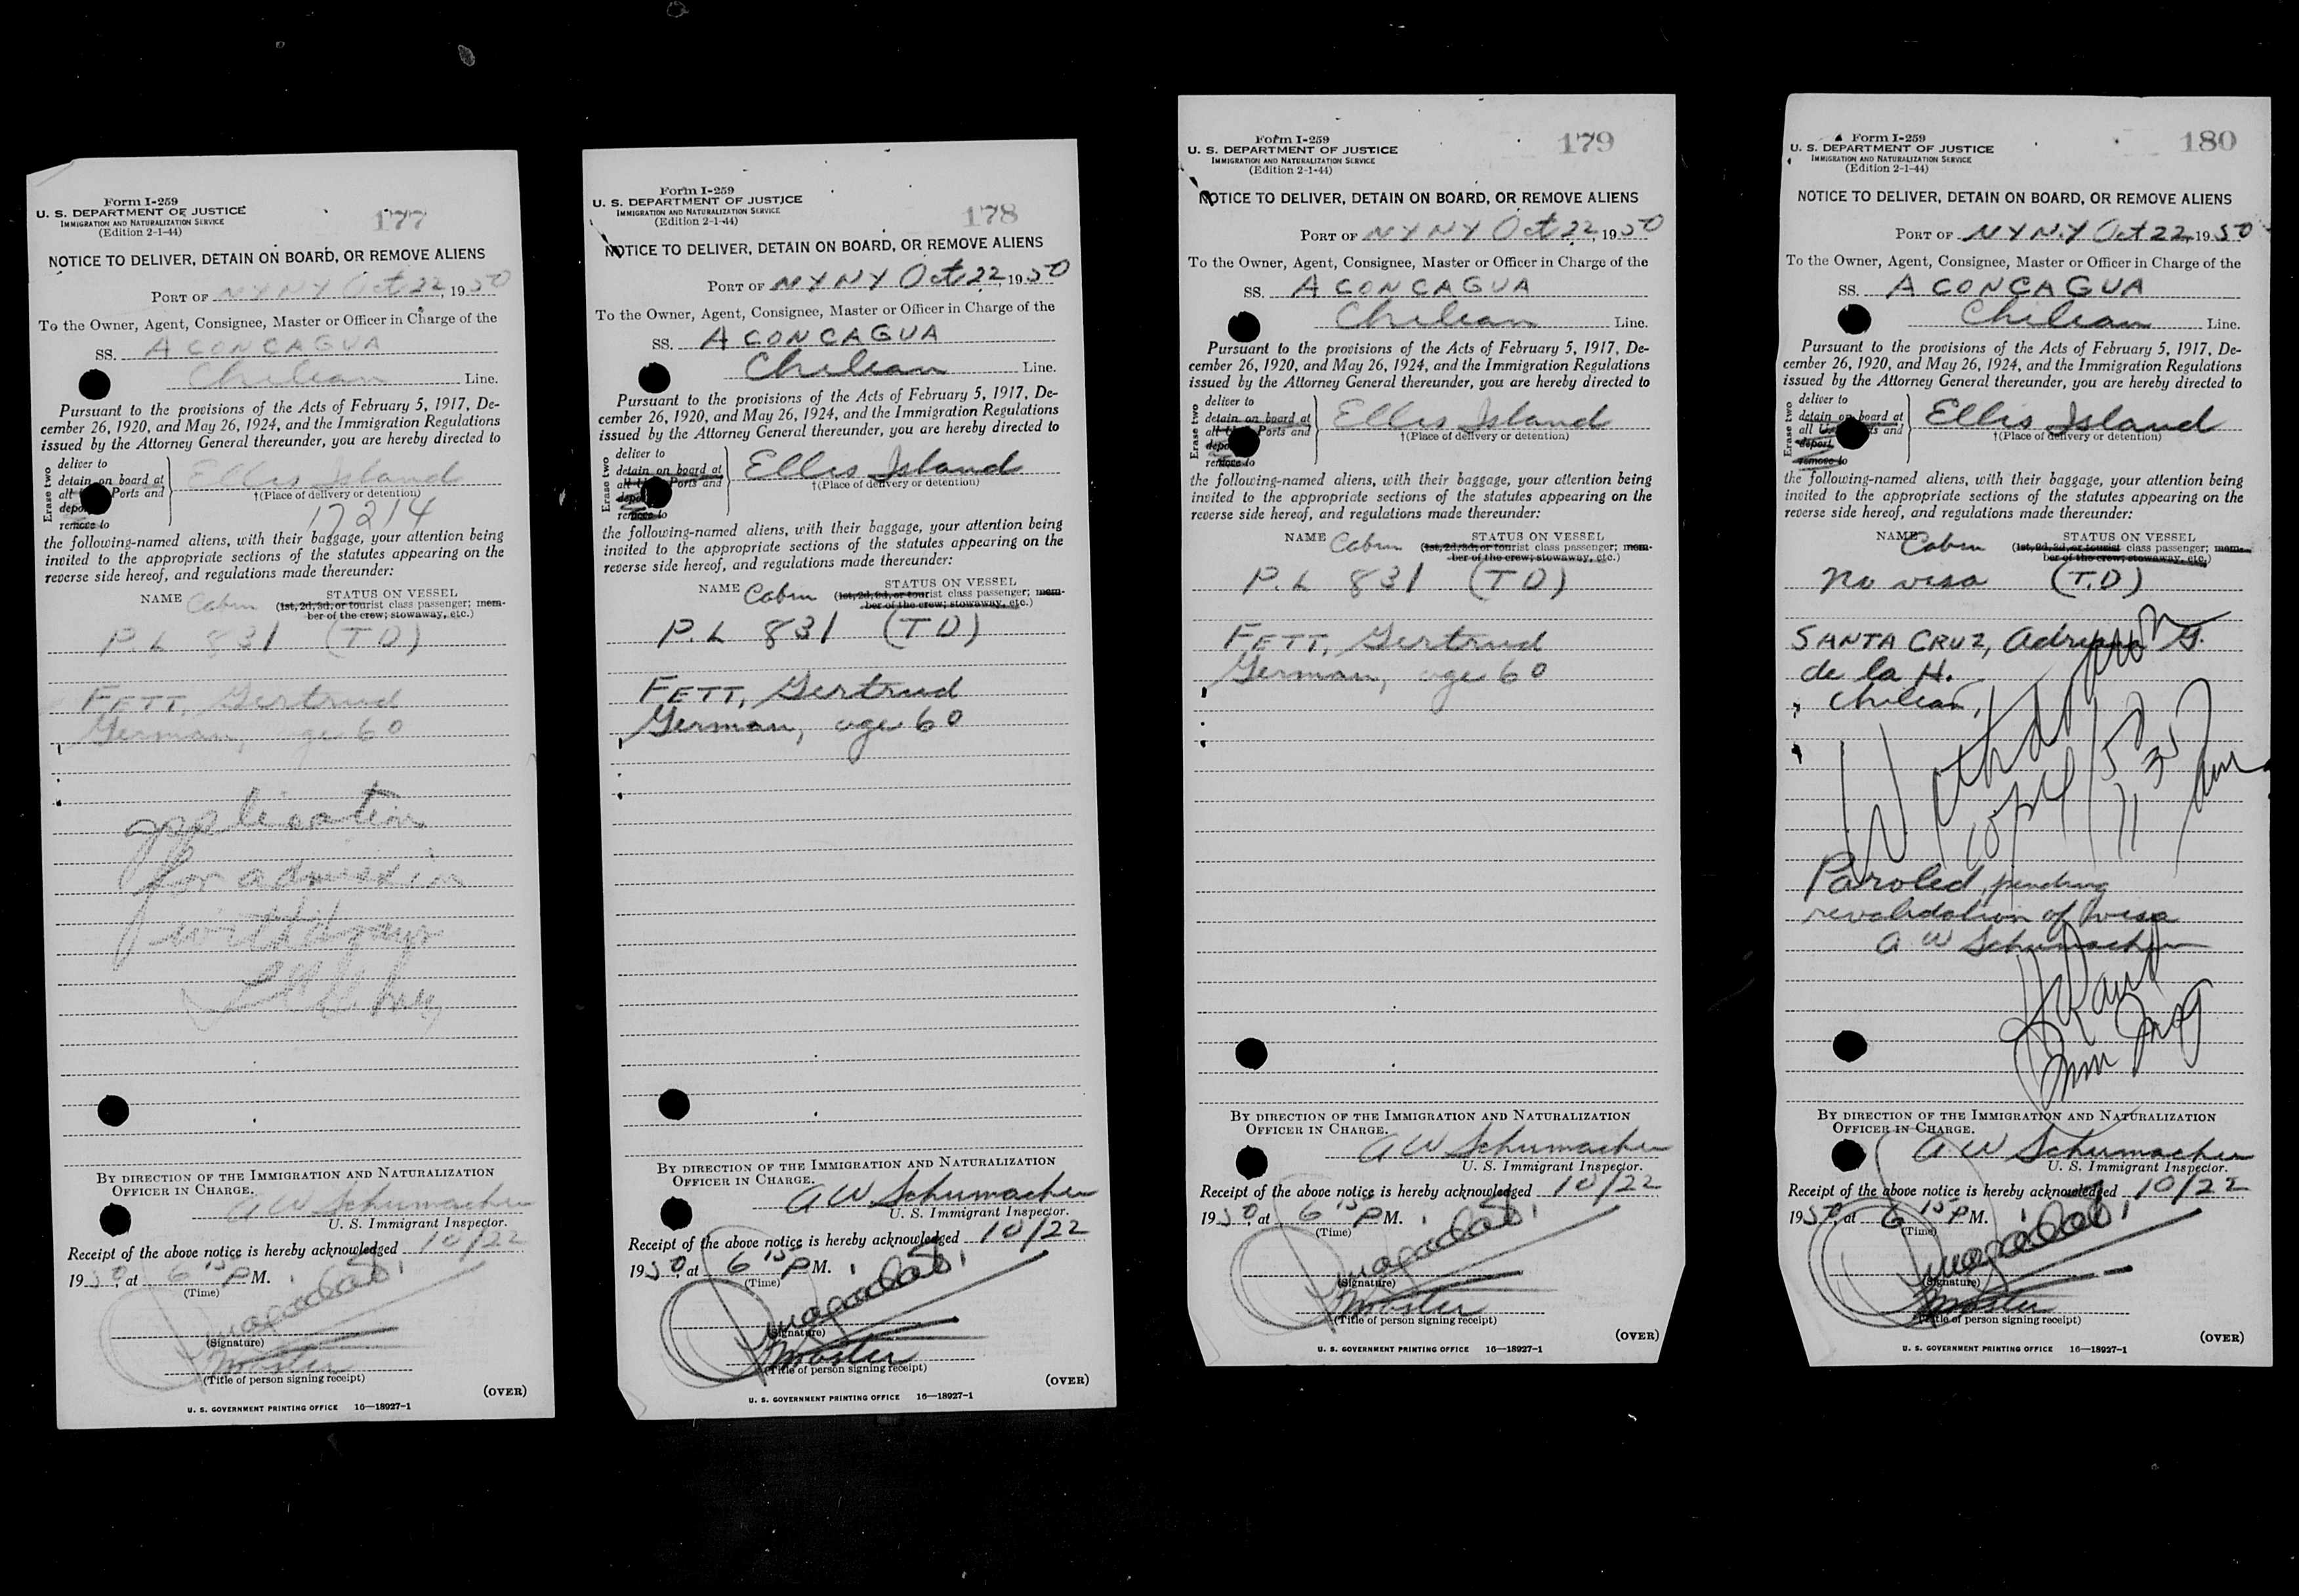 Form I-259
U. S. DEPARTMENT OF JUSTICE
IMMIGRATION AND NATURALIZATION SERVICE
(Edition 2-1-44)
177
NOTICE TO DELIVER, DETAIN ON BOARD, OR REMOVE ALIENS
PORT OF NYNY Oct 22, 1950
To the Owner, Agent, Consignee, Master or Officer in Charge of the
SS. ACONCAGUA
Chilean Line.
Pursuant to the provisions of the Acts of February 5, 1917, De-
cember 26, 1920, and May 26, 1924, and the Immigration Regulations
issued by the Attorney General thereunder, you are hereby directed to
Erase two
deliver to
detain on board at
all Ports and
remove to
Ellis Island
†(Place of delivery or detention)
17214
the following-named aliens, with their baggage, your attention being
invited to the appropriate sections of the statutes appearing on the
reverse side hereof, and regulations made thereunder:
NAME Cabin STATUS ON VESSEL
(1st, 2d, 3d, or tourist class passenger; mem-
ber of the crew; stowaway, etc.)
P.L 831 (TD)
FETT, Gertrud
German, age 60
application
for admission
withdrawn
BY DIRECTION OF THE IMMIGRATION AND NATURALIZATION
OFFICER IN CHARGE.
A W Schumacher
U. S. Immigrant Inspector.
Receipt of the above notice is hereby acknowledged 10/22
1950, at 6 15 PM.
(Time)
(Signature)
Master
(Title of person signing receipt)
(OVER)
U. S. GOVERNMENT PRINTING OFFICE 16—18927-1
Form I-259
U. S. DEPARTMENT OF JUSTICE
IMMIGRATION AND NATURALIZATION SERVICE
(Edition 2-1-44)
178
NOTICE TO DELIVER, DETAIN ON BOARD, OR REMOVE ALIENS
PORT OF NYNY Oct 22, 1950
To the Owner, Agent, Consignee, Master or Officer in Charge of the
SS. ACONCAGUA
Chilean Line.
Pursuant to the provisions of the Acts of February 5, 1917, De-
cember 26, 1920, and May 26, 1924, and the Immigration Regulations
issued by the Attorney General thereunder, you are hereby directed to
Erase two
deliver to
detain on board at
all Ports and
remove to
Ellis Island
†(Place of delivery or detention)
the following-named aliens, with their baggage, your attention being
invited to the appropriate sections of the statutes appearing on the
reverse side hereof, and regulations made thereunder:
NAME Cabin STATUS ON VESSEL
(1st, 2d, 3d, or tourist class passenger; mem-
ber of the crew; stowaway, etc.)
P.L 831 (TD)
FETT, Gertrud
German, age 60
BY DIRECTION OF THE IMMIGRATION AND NATURALIZATION
OFFICER IN CHARGE.
A W Schumacher
U. S. Immigrant Inspector.
Receipt of the above notice is hereby acknowledged 10/22
1950, at 6 15 PM.
(Time)
(Signature)
Master
(Title of person signing receipt)
(OVER)
U. S. GOVERNMENT PRINTING OFFICE 16—18927-1
Form I-259
U. S. DEPARTMENT OF JUSTICE
IMMIGRATION AND NATURALIZATION SERVICE
(Edition 2-1-44)
179
NOTICE TO DELIVER, DETAIN ON BOARD, OR REMOVE ALIENS
PORT OF NYNY Oct 22, 1950
To the Owner, Agent, Consignee, Master or Officer in Charge of the
SS. ACONCAGUA
Chilean Line.
Pursuant to the provisions of the Acts of February 5, 1917, De-
cember 26, 1920, and May 26, 1924, and the Immigration Regulations
issued by the Attorney General thereunder, you are hereby directed to
Erase two
deliver to
detain on board at
all Ports and
remove to
Ellis Island
†(Place of delivery or detention)
the following-named aliens, with their baggage, your attention being
invited to the appropriate sections of the statutes appearing on the
reverse side hereof, and regulations made thereunder:
NAME Cabin STATUS ON VESSEL
(1st, 2d, 3d, or tourist class passenger; mem-
ber of the crew; stowaway, etc.)
P.L 831 (TD)
FETT, Gertrud
German, age 60
BY DIRECTION OF THE IMMIGRATION AND NATURALIZATION
OFFICER IN CHARGE.
A W Schumacher
U. S. Immigrant Inspector.
Receipt of the above notice is hereby acknowledged 10/22
1950, at 6 15 PM.
(Time)
(Signature)
Master
(Title of person signing receipt)
(OVER)
U. S. GOVERNMENT PRINTING OFFICE 16—18927-1
Form I-259
U. S. DEPARTMENT OF JUSTICE
IMMIGRATION AND NATURALIZATION SERVICE
(Edition 2-1-44)
180
NOTICE TO DELIVER, DETAIN ON BOARD, OR REMOVE ALIENS
PORT OF NYN.Y Oct 22, 1950
To the Owner, Agent, Consignee, Master or Officer in Charge of the
SS. ACONCAGUA
Chilean Line.
Pursuant to the provisions of the Acts of February 5, 1917, De-
cember 26, 1920, and May 26, 1924, and the Immigration Regulations
issued by the Attorney General thereunder, you are hereby directed to
Erase two
deliver to
detain on board at
all and
deport
remove to
Ellis Island
†(Place of delivery or detention)
the following-named aliens, with their baggage, your attention being
invited to the appropriate sections of the statutes appearing on the
reverse side hereof, and regulations made thereunder:
NAME Cabin STATUS ON VESSEL
(1st, 2d, 3d, or tourist class passenger; mem-
ber of the crew; stowaway, etc.)
No visa (T.D)
SANTA CRUZ, Adriana G.
de la H.
Chilean,
Withdrawn
Paroled, pending
revalidation of visa
A W Schumacher
Imm Insp
BY DIRECTION OF THE IMMIGRATION AND NATURALIZATION
OFFICER IN CHARGE.
A W Schumacher
U. S. Immigrant Inspector.
Receipt of the above notice is hereby acknowledged 10/22
1950, at 6 15 PM.
(Time)
(Signature)
Master
(Title of person signing receipt)
(OVER)
U. S. GOVERNMENT PRINTING OFFICE 16—18927-1